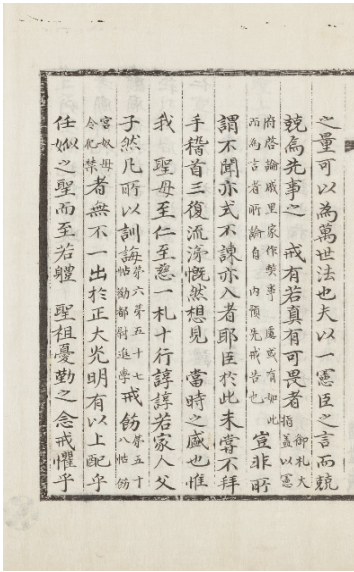 之量可以為萬世法也夫以一憲臣之言而兢
兢焉先事之 戒有若真有可畏者御札大指盖以憲
府啓論戚里家作獘事慮或有如此而為言者所論自 內預先戒告也豈非所
謂不聞亦式不諫亦入者耶臣於此未嘗不拜
手稽首三復流涕慨然想見 當時之盛也惟
我 聖母至仁至慈一札十行諄諄若家人父
子然凡所以訓誨第六第五十七帖勸都尉進學戒飭第五十八帖飭
宮奴毋令犯禁者無不一出於正大光明有以上配乎
任姒之聖而至若軆 聖祖憂勤之念戒懼乎